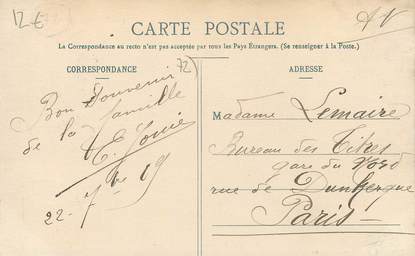 12 €
A V
CARTE POSTALE
La Correspondance au recto n'est pas acceptée par tous les Pays Étrangers. (Se renseigner à la Poste.)
CORRESPONDANCE
72
ADRESSE
Bon Souvenir
de la famille
22 - 7bre 09
Madame Lemaire
Bureau des
gare du Nord
rue de Dunkerque
Paris